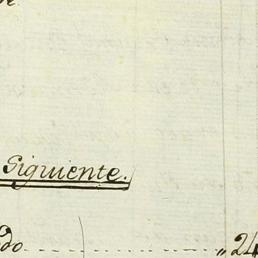 Siguiente.
do ,,24